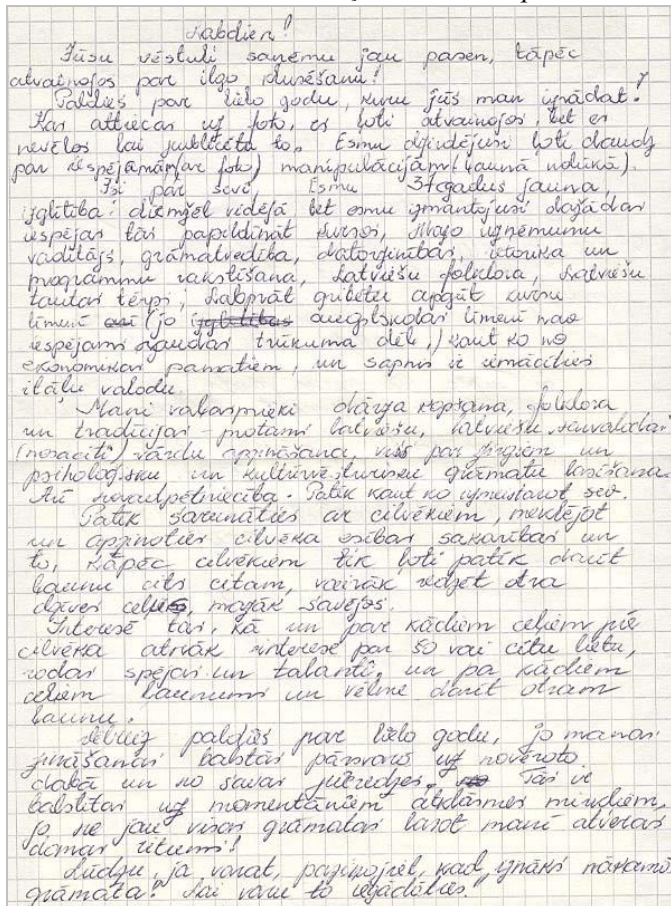 Labdien!
Jūsu vēstuli saņēmu jau pasen, tāpēc
atvainojos par ilgo klusēšanu!
Paldies par lielo godu, kuru jūs man izrādat!
Kas attiecas uz foto, es ļoti atvainojos, bet es
nevēlos lai publicētu to. Esmu dzirdējusi ļoti daudz
par iespējamām (ar foto) manipulācijām (ļaunā nolūkā).
Īsi par sevi, Esmu 37gadus jauna,
izglītība: diemžēl vidējā, bet esmu izmantojusi dažādas
iespējas tās papildināt kursos, Mazo uzņēmumu
vadītājs, grāmatvedība, datorzinības, retorika un
programmu rakstīšana, Latviešu folklora, Latviešu
tautas tērps, Labprāt gribētu apgūt kursu
līmenī (jo izglītības augstskolas līmenī nav
iespējams naudas trūkuma dēļ,) kaut ko no
ekonomikas pamatiem, un sapnis ir iemācīties
itāļu valodu.
Mani vaļasprieki dārza kopšana, folklora
un tradīcijas - protams latviešu, latviešu
(nosacīti) vārdu apzināšana, viss par zirgiem un
psiholoģisku un kultūrvēsturisku grāmatu lasīšana.
Arī novadpētniecība. Patīk kaut ko izmustarot sev.
Patīk sarunāties ar cilvēkiem, meklējot
un apzinoties cilvēka esības sakarības un
to, kāpēc cilvēkiem tik ļoti patīk darīt
ļaunu cits citam, vairāk redzēt otra
dzīves ceļu, mazāk savējos.
Interesē tas, kā un par kādiem ceļiem pie
cilvēka atnāk interese par šo vai citu lietu,
rodas spējas un talanti, un pa kādiem
ceļiem ļaunums un vēlme darīt otram
ļaunu.
Vēlreiz paldies par lielo godu, jo manas
zināšanas balstās pārsvarā uz novēroto
dabā un no savas pieredzes. Tās ir
balstītas uz momentāniem atklāsmes mirkļiem,
jo ne jau visas grāmatas lasot manī atveras
domas ritums!
Lūdzu, ja varat, paziņojiet, kad iznāks nākamā
grāmata? Lai varu to iegādāties.